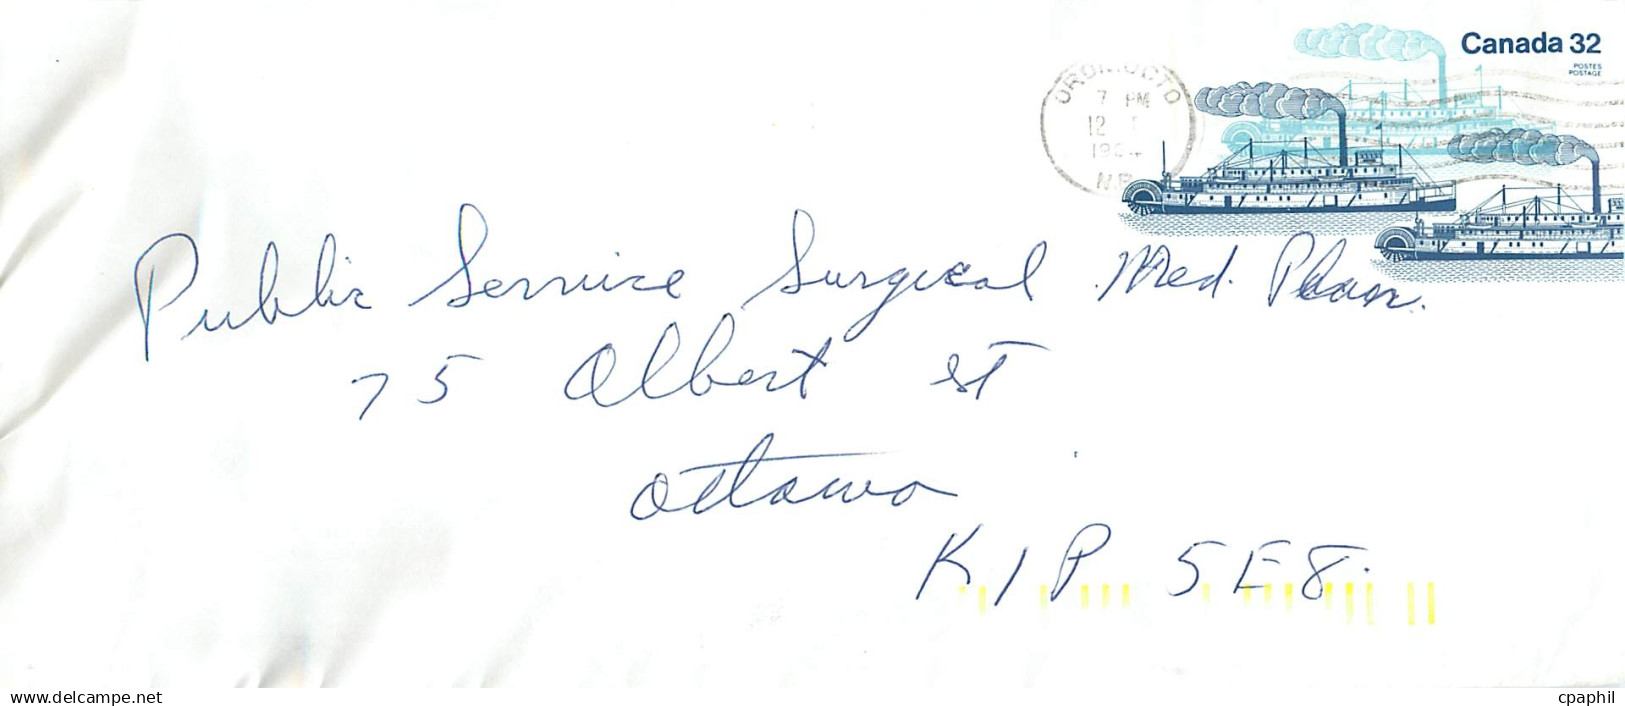 Canada 32
POSTES
POSTAGE
OROMOCTO
7 PM
12
1984
N.B.
Public Service Surgical Med. Plan.
75 Albert St
Ottawa
K1P 5E8.
www.delcampe.net
cpaphil